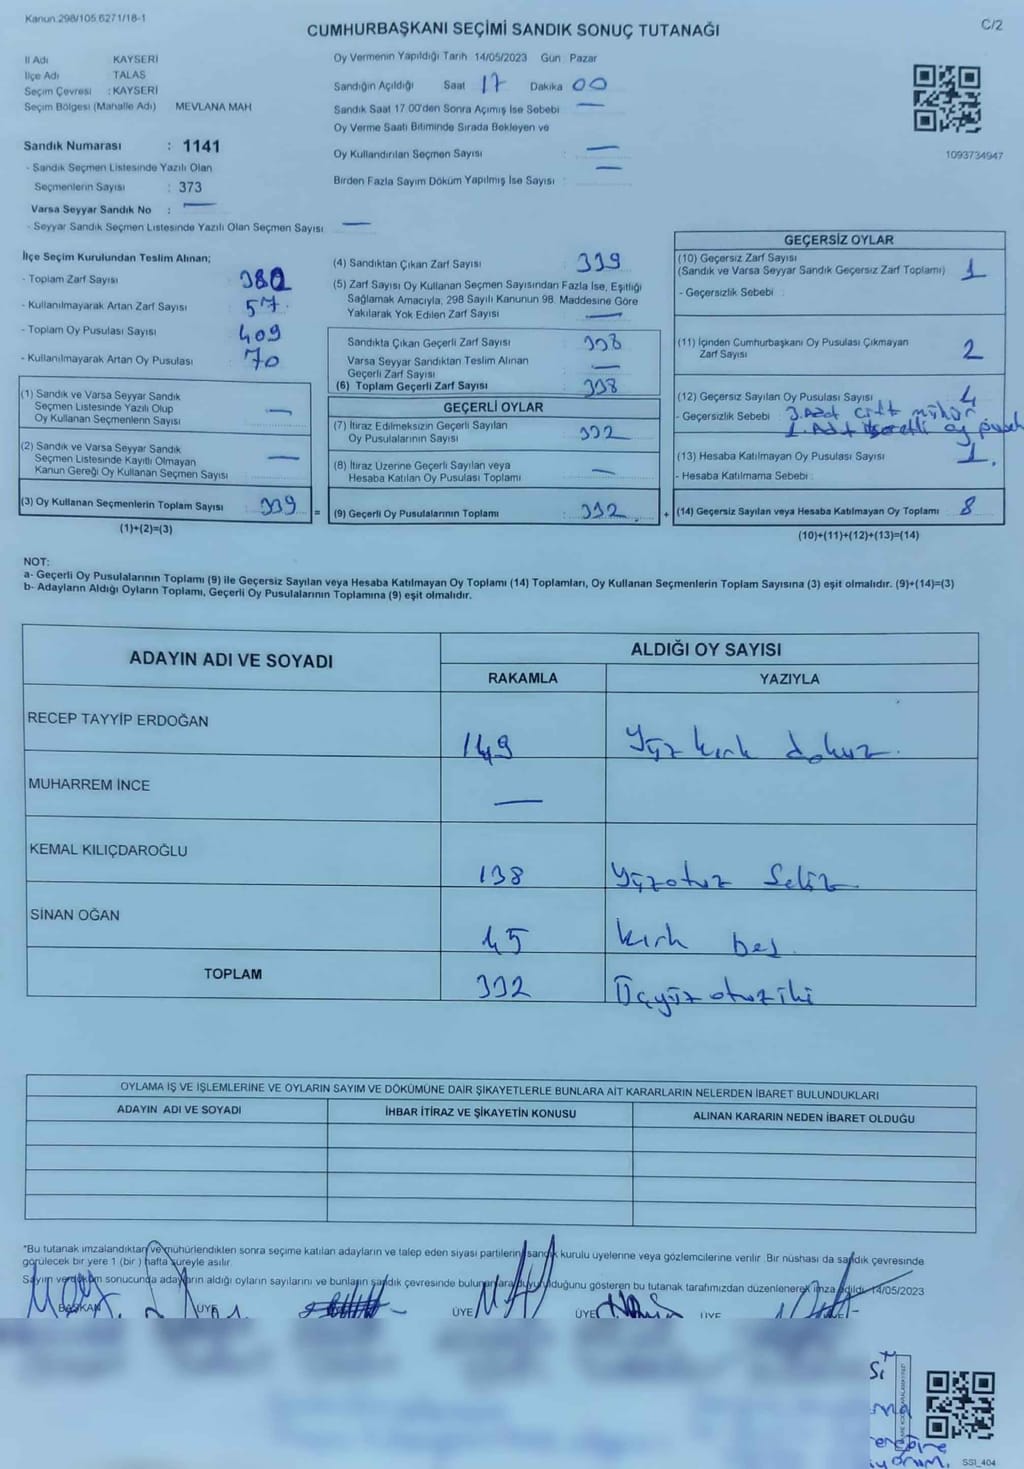 Kanun.298/105.6271/18-1
CUMHURBAŞKANI SEÇİMİ SANDIK SONUÇ TUTANAĞI
C/2
İl Adı KAYSERİ
İlçe Adı TALAS
Seçim Çevresi : KAYSERİ
Seçim Bölgesi (Mahalle Adı) MEVLANA MAH
Sandık Numarası : 1141
- Sandık Seçmen Listesinde Yazılı Olan
Seçmenlerin Sayısı : 373
Varsa Seyyar Sandık No : —
- Seyyar Sandık Seçmen Listesinde Yazılı Olan Seçmen Sayısı —
Oy Vermenin Yapıldığı Tarih 14/05/2023 Gün Pazar
Sandığın Açıldığı Saat 17 Dakika 00
Sandık Saat 17.00'den Sonra Açımış İse Sebebi —
Oy Verme Saati Bitiminde Sırada Bekleyen ve
Oy Kullandırılan Seçmen Sayısı : —
Birden Fazla Sayım Döküm Yapılmış İse Sayısı : —
1093734947
İlçe Seçim Kurulundan Teslim Alınan;
- Toplam Zarf Sayısı
- Kullanılmayarak Artan Zarf Sayısı : 57
- Toplam Oy Pusulası Sayısı : 409
- Kullanılmayarak Artan Oy Pusulası : 70
(1) Sandık ve Varsa Seyyar Sandık
Seçmen Listesinde Yazılı Olup
Oy Kullanan Seçmenlerin Sayısı —
(2) Sandık ve Varsa Seyyar Sandık
Seçmen Listesinde Kayıtlı Olmayan
Kanun Gereği Oy Kullanan Seçmen Sayısı —
(3) Oy Kullanan Seçmenlerin Toplam Sayısı 339 =
(1)+(2)=(3)
(4) Sandıktan Çıkan Zarf Sayısı : 339
(5) Zarf Sayısı Oy Kullanan Seçmen Sayısından Fazla İse, Eşitliği
Sağlamak Amacıyla, 298 Sayılı Kanunun 98. Maddesine Göre
Yakılarak Yok Edilen Zarf Sayısı : —
Sandıkta Çıkan Geçerli Zarf Sayısı : 338
Varsa Seyyar Sandıktan Teslim Alınan
Geçerli Zarf Sayısı : —
(6) Toplam Geçerli Zarf Sayısı : 338
GEÇERLİ OYLAR
(7) İtiraz Edilmeksizin Geçerli Sayılan
Oy Pusulalarının Sayısı : 332
(8) İtiraz Üzerine Geçerli Sayılan veya
Hesaba Katılan Oy Pusulası Toplamı : —
(9) Geçerli Oy Pusulalarının Toplamı : 332 +
GEÇERSİZ OYLAR
(10) Geçersiz Zarf Sayısı
(Sandık ve Varsa Seyyar Sandık Geçersiz Zarf Toplamı) : 1
- Geçersizlik Sebebi :
(11) İçinden Cumhurbaşkanı Oy Pusulası Çıkmayan
Zarf Sayısı : 2
(12) Geçersiz Sayılan Oy Pusulası Sayısı : 4
- Geçersizlik Sebebi : 3. Adet çift mühür
1. Adt işaretli oy
(13) Hesaba Katılmayan Oy Pusulası Sayısı : 1.
- Hesaba Katılmama Sebebi :
(14) Geçersiz Sayılan veya Hesaba Katılmayan Oy Toplamı : 8
(10)+(11)+(12)+(13)=(14)
NOT:
a- Geçerli Oy Pusulalarının Toplamı (9) ile Geçersiz Sayılan veya Hesaba Katılmayan Oy Toplamı (14) Toplamları, Oy Kullanan Seçmenlerin Toplam Sayısına (3) eşit olmalıdır. (9)+(14)=(3)
b- Adayların Aldığı Oyların Toplamı, Geçerli Oy Pusulalarının Toplamına (9) eşit olmalıdır.
ADAYIN ADI VE SOYADI
ALDIĞI OY SAYISI
RAKAMLA YAZIYLA
RECEP TAYYİP ERDOĞAN 149 Yüz kırk dokuz.
MUHARREM İNCE —
KEMAL KILIÇDAROĞLU 138 Yüzotuz Sekiz
SİNAN OĞAN 45 kırk beş.
TOPLAM 332 Üçyüz otuziki
OYLAMA İŞ VE İŞLEMLERİNE VE OYLARIN SAYIM VE DÖKÜMÜNE DAİR ŞİKAYETLERLE BUNLARA AİT KARARLARIN NELERDEN İBARET BULUNDUKLARI
ADAYIN ADI VE SOYADI İHBAR İTİRAZ VE ŞİKAYETİN KONUSU ALINAN KARARIN NEDEN İBARET OLDUĞU
*Bu tutanak imzalandıktan ve mühürlendikten sonra seçime katılan adayların ve talep eden siyasi partilerin sandık kurulu üyelerine veya gözlemcilerine verilir. Bir nüshası da sandık çevresinde
görülecek bir yere 1 (bir ) hafta süreyle asılır.
Sayım ve döküm sonucunda adayların aldığı oyların sayılarını ve bunların sandık çevresinde bulunanlara duyurulduğunu gösteren bu tutanak tarafımızdan düzenlenerek imza edildi. 14/05/2023
BAŞKAN ÜYE ÜYE ÜYE ÜYE
SS1_404